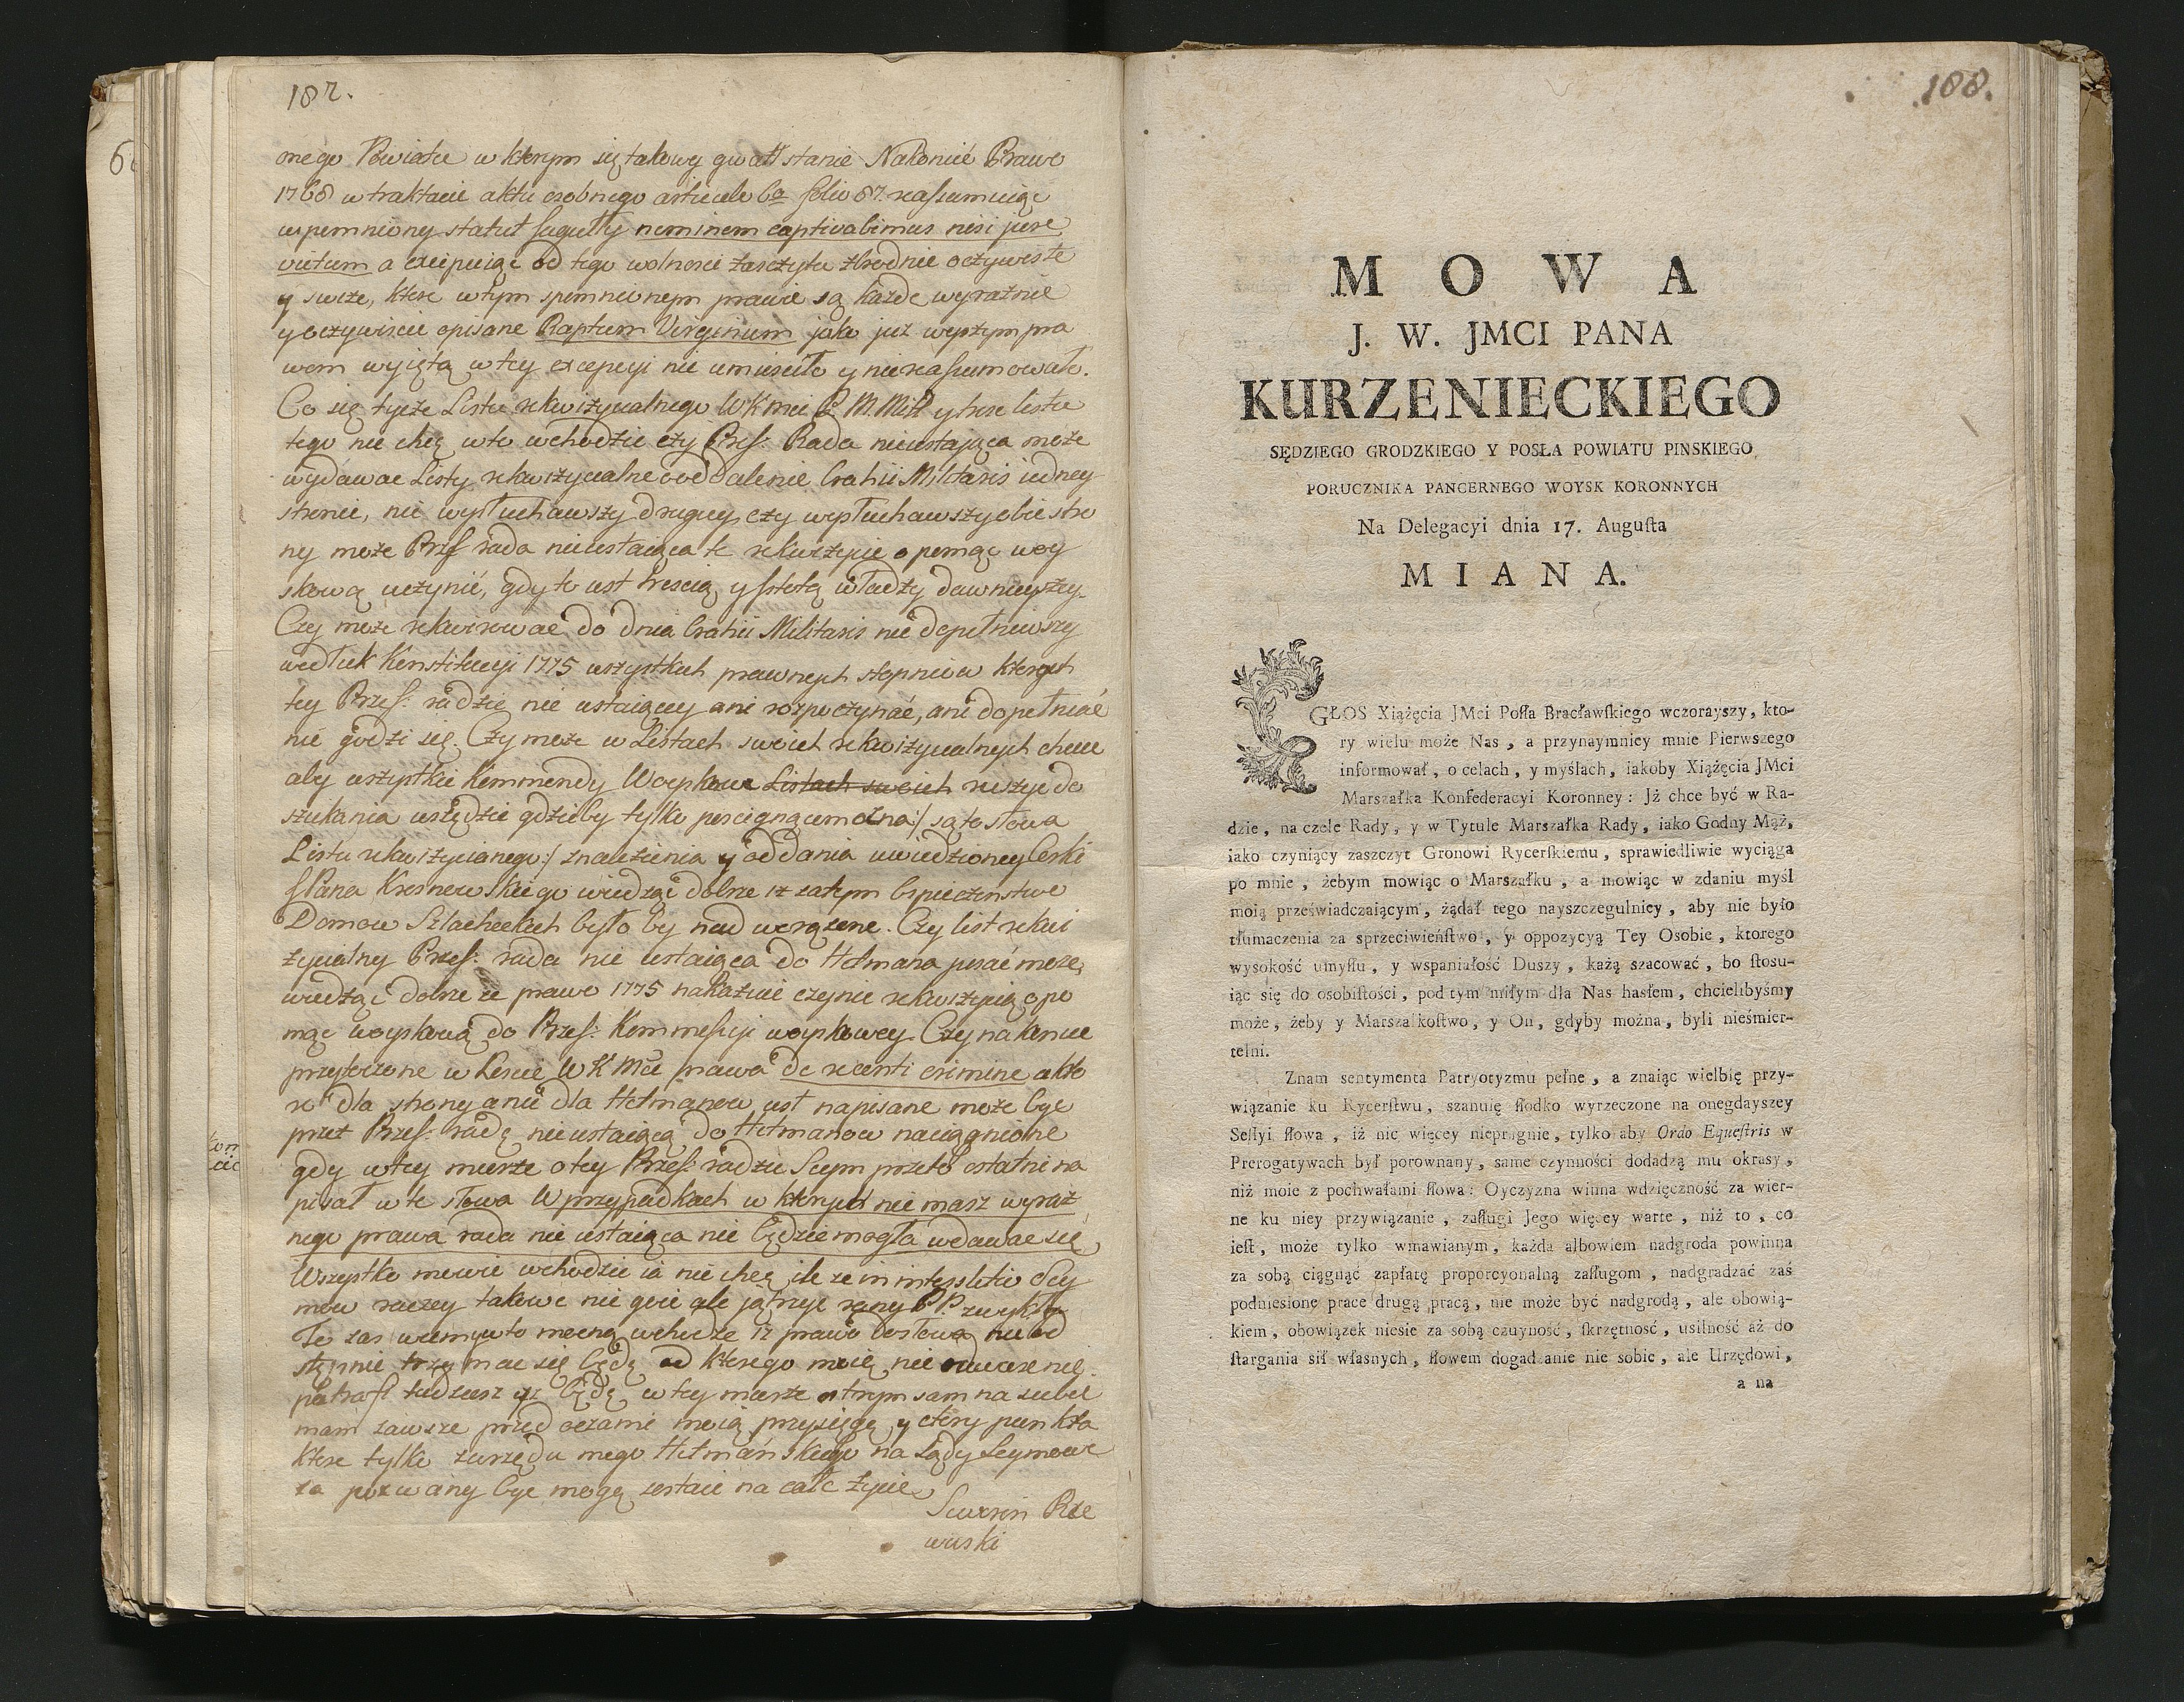 187.
onego Powiatu w ktorym się takowy gwałt stanie Nakonieć Prawo
1768 w traktacie aktu osobnego articulo 6º folio 87. reassumuiąc
wspomniony statut Jagiełły neminem captivabimus nisi jure
victum a excipuiąc od tego wolnosci zasczytu zbrodnie oczywiste
y swieże, ktore w tym spomnionym prawie są każde wyraźnie
y oczywiscie opisane Raptum Virginum jako już wyższym pra
wem wyiętą w tey excepcyi nie umiesciło y nie reassumowało.
Co się tycze Listu rekwizycialnego WKMci P. M. Mił y tresc listu
tego nie chcę w to wchodzić czy Prześ: Rada nieustająca może
wydawac Listy rekwizycialne o oddalenie Brahii Militaris iedney
stronie, nie wysłuchawszy drugiey, czy wysłuchawszy obie stro
ny może Prześ rada nieustaiąca te rekwizycie o pomąc woy
skową uczynić, gdy to iest trescią y istotą władzy dawnieyszey.
Czy może rekwirowac do dnia Brahii Militaris nie dopełniwszy
wedłuk Konstitucyi 1775 wszystkich prawnych stopniow ktorych
tey Prześ: radzie nie ustaiącey ani rozpoczynać, ani dopełniać
nie godzi się. Czy może w Listach swoich rekwizycialnych chciec
aby wszystkie Kommendy Woyskowe Listach swoich ruszyc do
szukania wszędzie gdzieby tylko poscignąc można :/ są to słowa
Listu rekwizycianego :/ znalezienia y oddania uwiedzioney Corki
JPana Kosnowskiego wiedząc dobrze iz zatym bespieczenstwo
Domow Szlacheckich było by nad werązone. Czy list rekwi
zycialny Prześ: rada nie ustaiąca do Hetmana pisać może,
wiedząc dobrze że prawo 1775 nakazuie czynic rekwizycią o po
mąc woyskową do Prześ: Kommissyi woyskowey. Czy nakoniec
przytoczone w Liscie WKMci prawa de recenti crimine akto
re dla strony a nie dla Hetmanow iest napisane może byc
przez Prześ: radę nieustaiącą do Hetmanow naciągnione
gdy w tey mierze o tey Prześ: radzie Seym przeszło ostatni na
pisał w te słowa W przypadkach w ktorych nie masz wyraź
nego prawa rada nie ustaiąca nie będzie mogła wdawac się
Wszystko mowie wchodzic ia nie chcę ile ze in interstitio Sey
mow raczey takowe nie goic ale jątrzyc rany PP. zwykły
To zas w umysto mocno wchodze iz prawo dosłowa nieod
stępnie trzymac się będę od ktorego mnię nie odwiesc nie
potrafi tudziesz iz będę w tey mierze ostrym sam na siebie
mam zawsze przed oczami moią przysięgę y cztery punkta
ktore tylko z urzędu mego Hetmańskiego na Sądy Seymowe
za pozwany byc mogę zostaie na całe życie
Sewerin Rze
wuski
188.
M O W A
J. W. JMCI PANA
KURZENIECKIEGO
SĘDZIEGO GRODZKIEGO Y POSŁA POWIATU PINSKIEGO
PORUCZNIKA PANCERNEGO WOYSK KORONNYCH
Na Delegacyi dnia 17. Augusta
M I A N A.
GŁOS Xiążęcia JMci Posła Bracławskiego wczorayszy, kto-
ry wielu może Nas, a przynaymniey mnie Pierwszego
informował, o celach, y myślach, iakoby Xiążęcia JMci
Marszałka Konfederacyi Koronney: Jż chce być w Ra-
dzie, na czele Rady, y w Tytule Marszałka Rady, iako Godny Mąż,
iako czyniący zaszczyt Gronowi Rycerskiemu, sprawiedliwie wyciąga
po mnie, żebym mowiąc o Marszałku, a mowiąc w zdaniu myśl
moią przeświadczaiącym, żądał tego nayszczegulniey, aby nie było
tłumaczenia za sprzeciwieństwo, y oppozycyą Tey Osobie, ktorego
wysokość umysłu, y wspaniałość Duszy, każą szacować, bo stosu-
iąc się do osobistości, pod tym miłym dla Nas hasłem, chcielibyśmy
może, żeby y Marszałkostwo, y On, gdyby można, byli nieśmier-
telni.
Znam sentymenta Patryotyzmu pełne, a znaiąc wielbię przy-
wiązanie ku Rycerstwu, szanuię słodko wyrzeczone na onegdayszey
Sessyi słowa, iż nic więcey niepragnie, tylko aby Ordo Equestris w
Prerogatywach był porownany, same czynności dodadzą mu okrasy,
niż moie z pochwałami słowa: Oyczyzna winna wdzięczność za wier-
ne ku niey przywiązanie, zasługi Jego więcey warte, niż to, co
iest, może tylko wmawianym, każda albowiem nadgroda powinna
za sobą ciągnąć zapłatę proporcyonalną zasługom, nadgradzać zaś
podniesione prace drugą pracą, nie może być nadgrodą, ale obowią-
kiem, obowiązek niesie za sobą czuyność, skrzętność, usilność aż do
stargania sił własnych, słowem dogadzanie nie sobie, ale Urzędowi,
a na